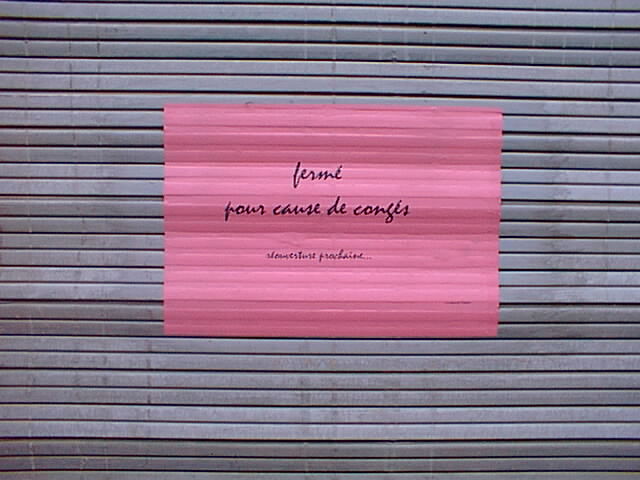 fermé
pour cause de congés
réouverture prochaine...